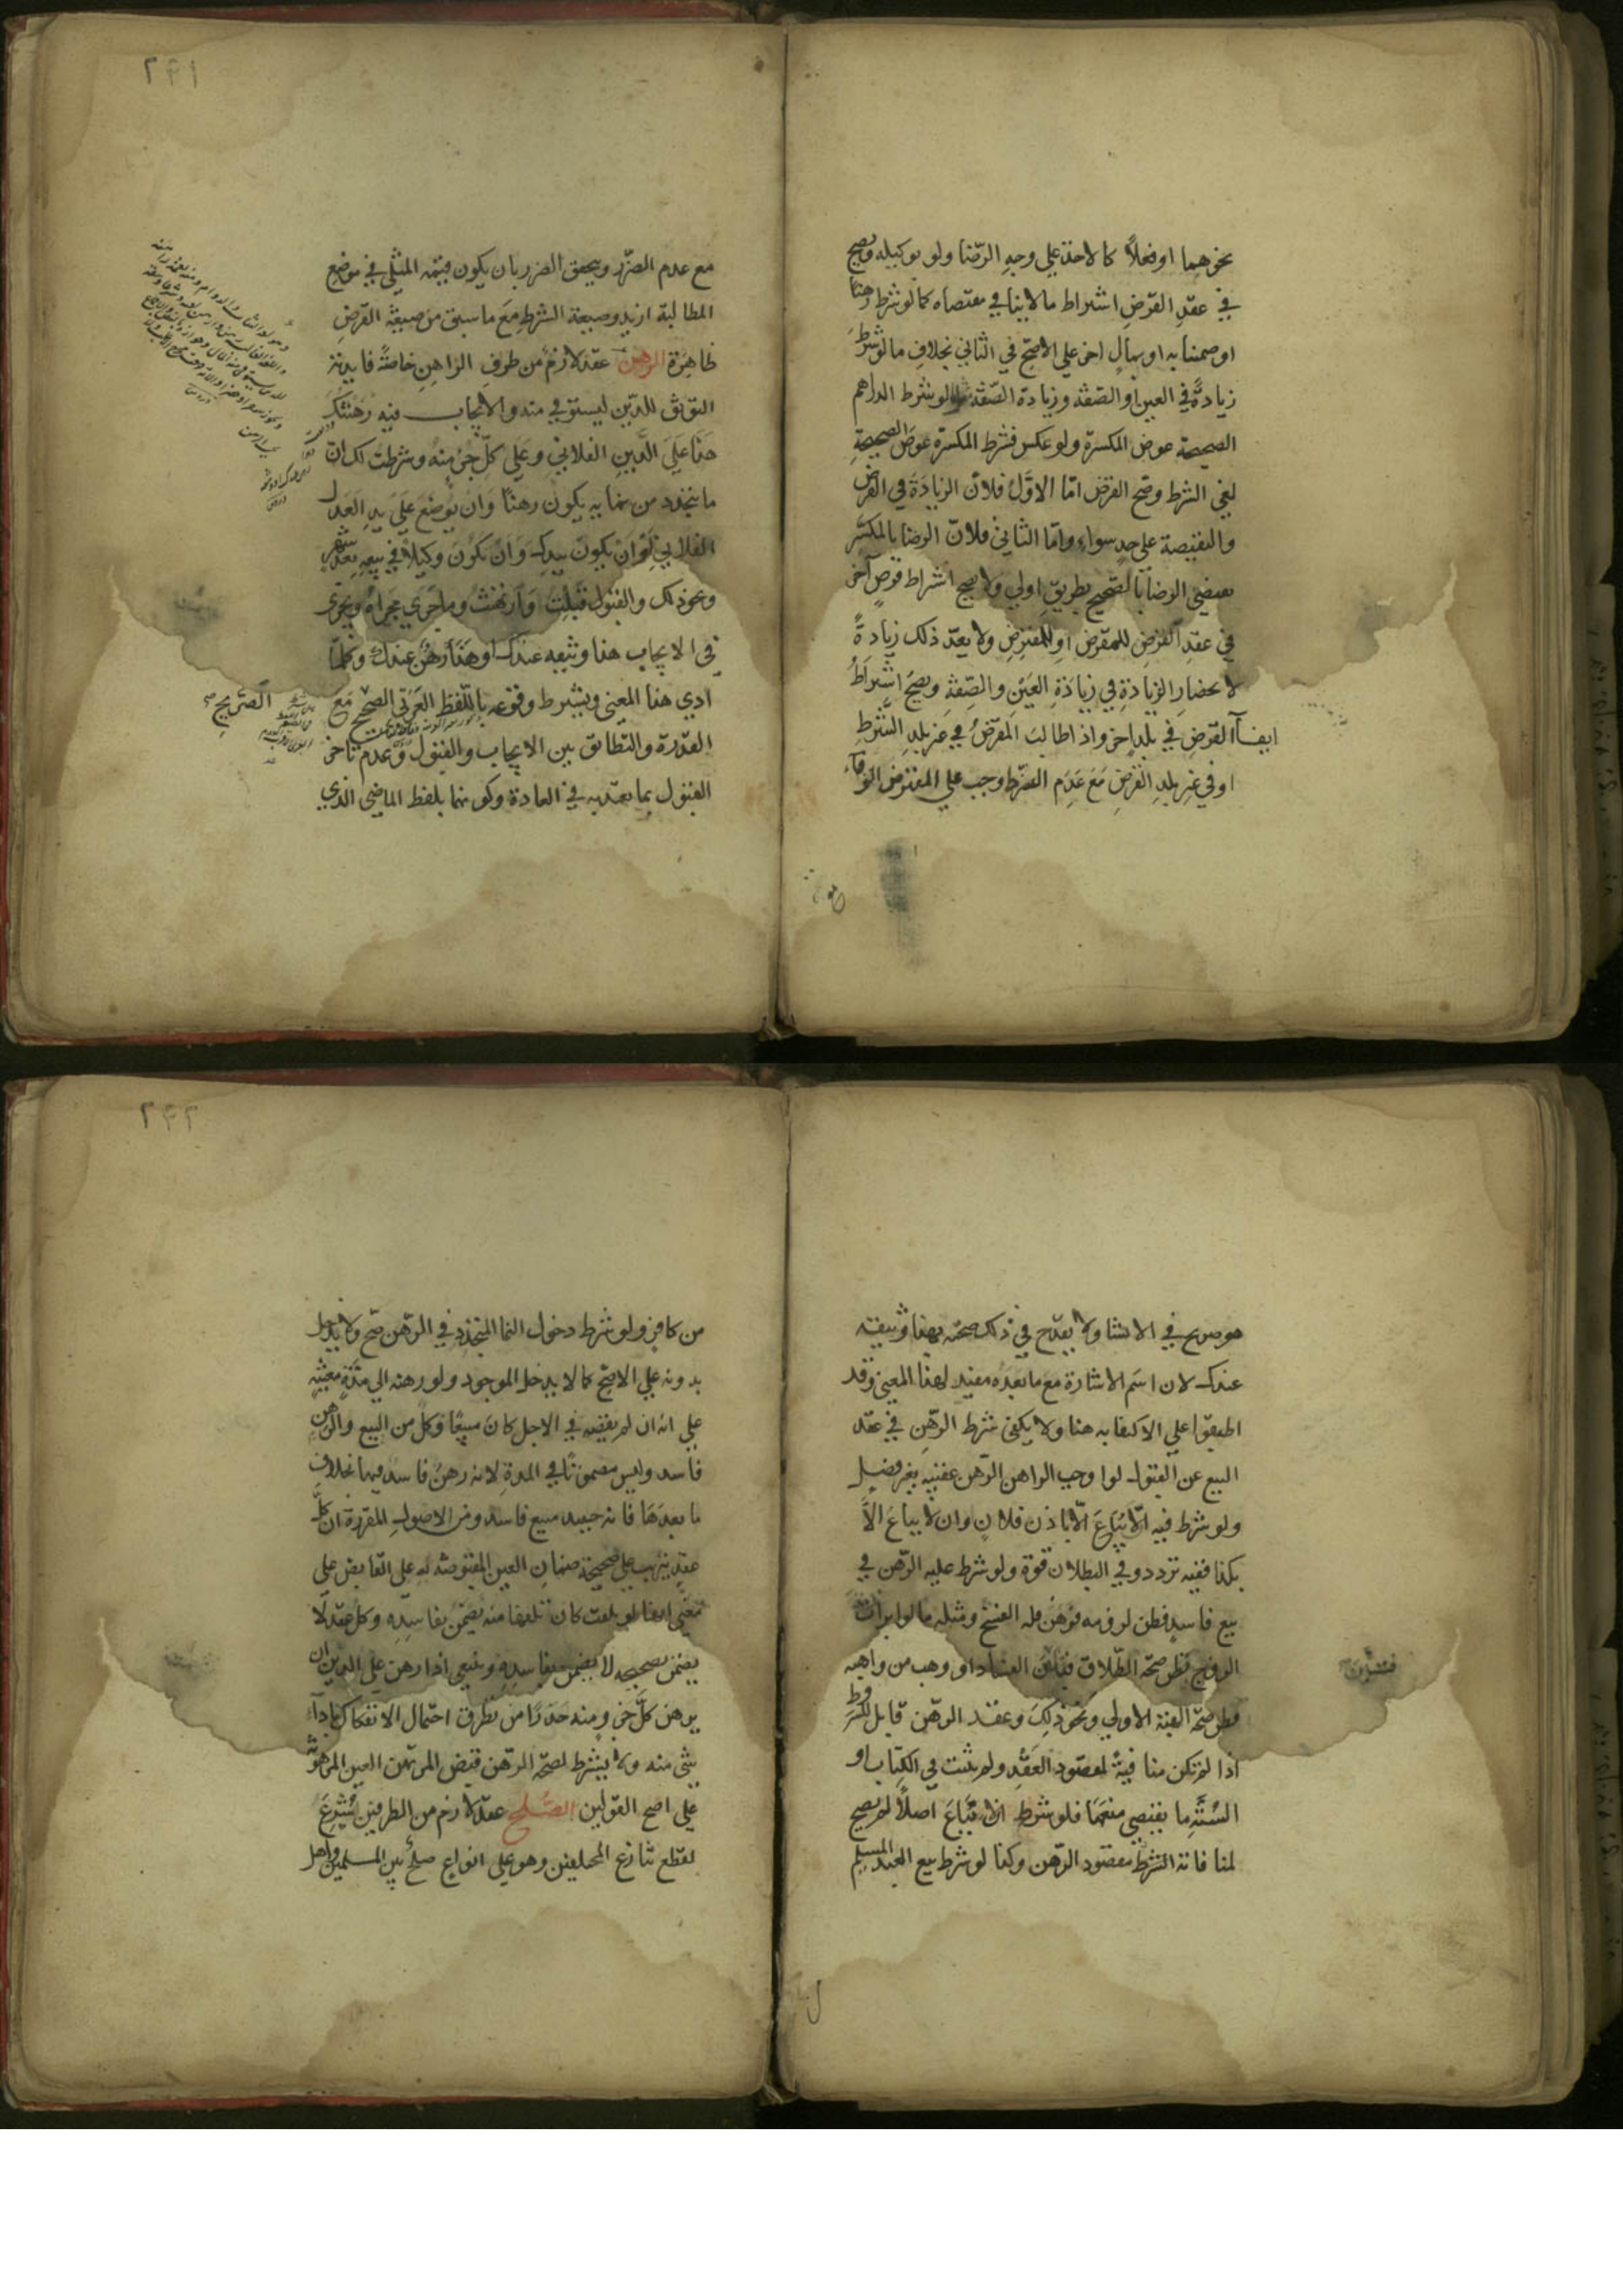 نحوهما او فعلاً كالاخذ علي وجه الرّضا ولو بوكيله ويصح
في عقد القرض اشتراط ما لا ينافي مقتضاه كما لو شرط رهناً
او ضميناً به او بمال اخر علي الاصحّ في الثاني بخلاف ما لو شرط
زيادةً في العين او الصّفة وزيادة الصّفة كما لو شرط الدراهم
الصحيحة عوض المكسرة ولو عكس فشرط المكسرة عوض الصحيحة
لغي الشرط وصح القرض امّا الاوّل فلانّ الزيادة في القرض
والنقيصة علي حد سواء وامّا الثاني فلانّ الرضا بالمكسّر
يقتضي الرضا بالصّحيح بطريق اولي ولا يصح اشتراط قرض آخر
في عقد القرض للمقرض او للمقترض ولا يعدّ ذلك زيادةً
لانحصار الزيادة في زيادة العين والصّفة ويصح اشتراط
ايفاء القرض في بلد اخر واذا طالب المقرض في غير بلد الشرط
او في غير بلد القرض مع عدم الشرط وجب علي المقترض الوفاء
٢٩١
مع عدم الضرر ويتحقق الضرر بان يكون قيمة المثلي في موضع
المطالبة ازيد وصيغة الشرط مع ما سبق من صيغة القرض
ظاهرة الرهن عقد لازم من طرف الراهن خاصّةً فايدته
التوثق للدّين ليستوفي منه والايجاب فيه رهنتك
هذا علي الدّين الفلاني وعلي كلّ جزء منه وشرطت لك انّ
ما يتجدد من نمايه يكون رهنًا وان يوضع علي يد العدل
الفلاني او ان يكون بيدك وان تكون وكيلاً في بيعه بعد شهر
ونحو ذلك والقبول قبلت وارتهنت وما جري مجراه ويجزي
في الايجاب هذا وثيقة عندك او هذا رهن عندك وكلّما
ادي هذا المعني ويشترط وقوعه باللّفظ العربي الصّحيح مع
الصّريح صح
القدرة والتطابق بين الايجاب والقبول وعدم تاخر
القبول بما يعتدّ به في العادة وكونهما بلفظ الماضي الذي
هو صريح في الانشا ولا يقدح في ذلك صحته بهذا وثيقة
عندك لان اسم الاشارة مع ما بعده مفيد لهذا المعني وقد
اطبقوا علي الاكتفا به هنا ولا يكفي شرط الرّهن في عقد
البيع عن القبول لو اوجب الراهن الرّهن عقيبه بغير فصل
ولو شرط فيه الاّ يباع الاّ باذن فلان وان لا يباع الاّ
بكذا ففيه تردد وفي البطلان قوة ولو شرط عليه الرّهن في
بيع فاسد فظن لزومه فرهن فله الفسخ ومثله ما لو ابرات
الزوج بظن صحّة الطّلاق فتبيّن الفساد او وهب من واهبه
بظن صحّة الهبة الاولي ونحو ذلك وعقد الرّهن قابل للشرط
اذا لم تكن منافيةً لمقصود العقد ولم يثبت في الكتاب او
السّنّة ما يقتضي منعها فلو شرط ان لا يباع اصلاً لم يصح
لمنافاته الشرط مقصود الرّهن وكذا لو شرط بيع العبد المسلم
٢٩٢
من كافر ولو شرط دخول النما المتجدد في الرّهن صحّ ولا يدخل
بدونه علي الاصحّ كما لا يدخل الموجود ولو رهنه الي مدّة معيّنة
علي انه ان لم يقضه في الاجل كان مبيعًا فكلّ من البيع والرّهن
فاسد وليس مضمونًا في المدة لانه رهن فاسد فيها بخلاف
ما بعدها فانه حينيذ مبيع فاسد ومن الاصول المقررة ان كلّ
عقد يترتب علي صحيحه ضمان العين المقبوضة به علي القابض علي
معني انها لو تلفت كان تلفها منه يضمن بفاسده وكل عقد لا
يضمن بصحيحه لا يضمن بفاسده وينبغي اذا رهن علي الدين ان
يرهن كلّ جزء منه حذرًا من تطرق احتمال الانفكاك باداء
شي منه ولا يشترط لصحّة الرّهن قبض المرتهن العين المرهونة
علي اصح القولين الصّلح عقد لازم من الطرفين شرع
لقطع تنازع المختلفين وهو علي انواع صلح بين المسلمين واهل